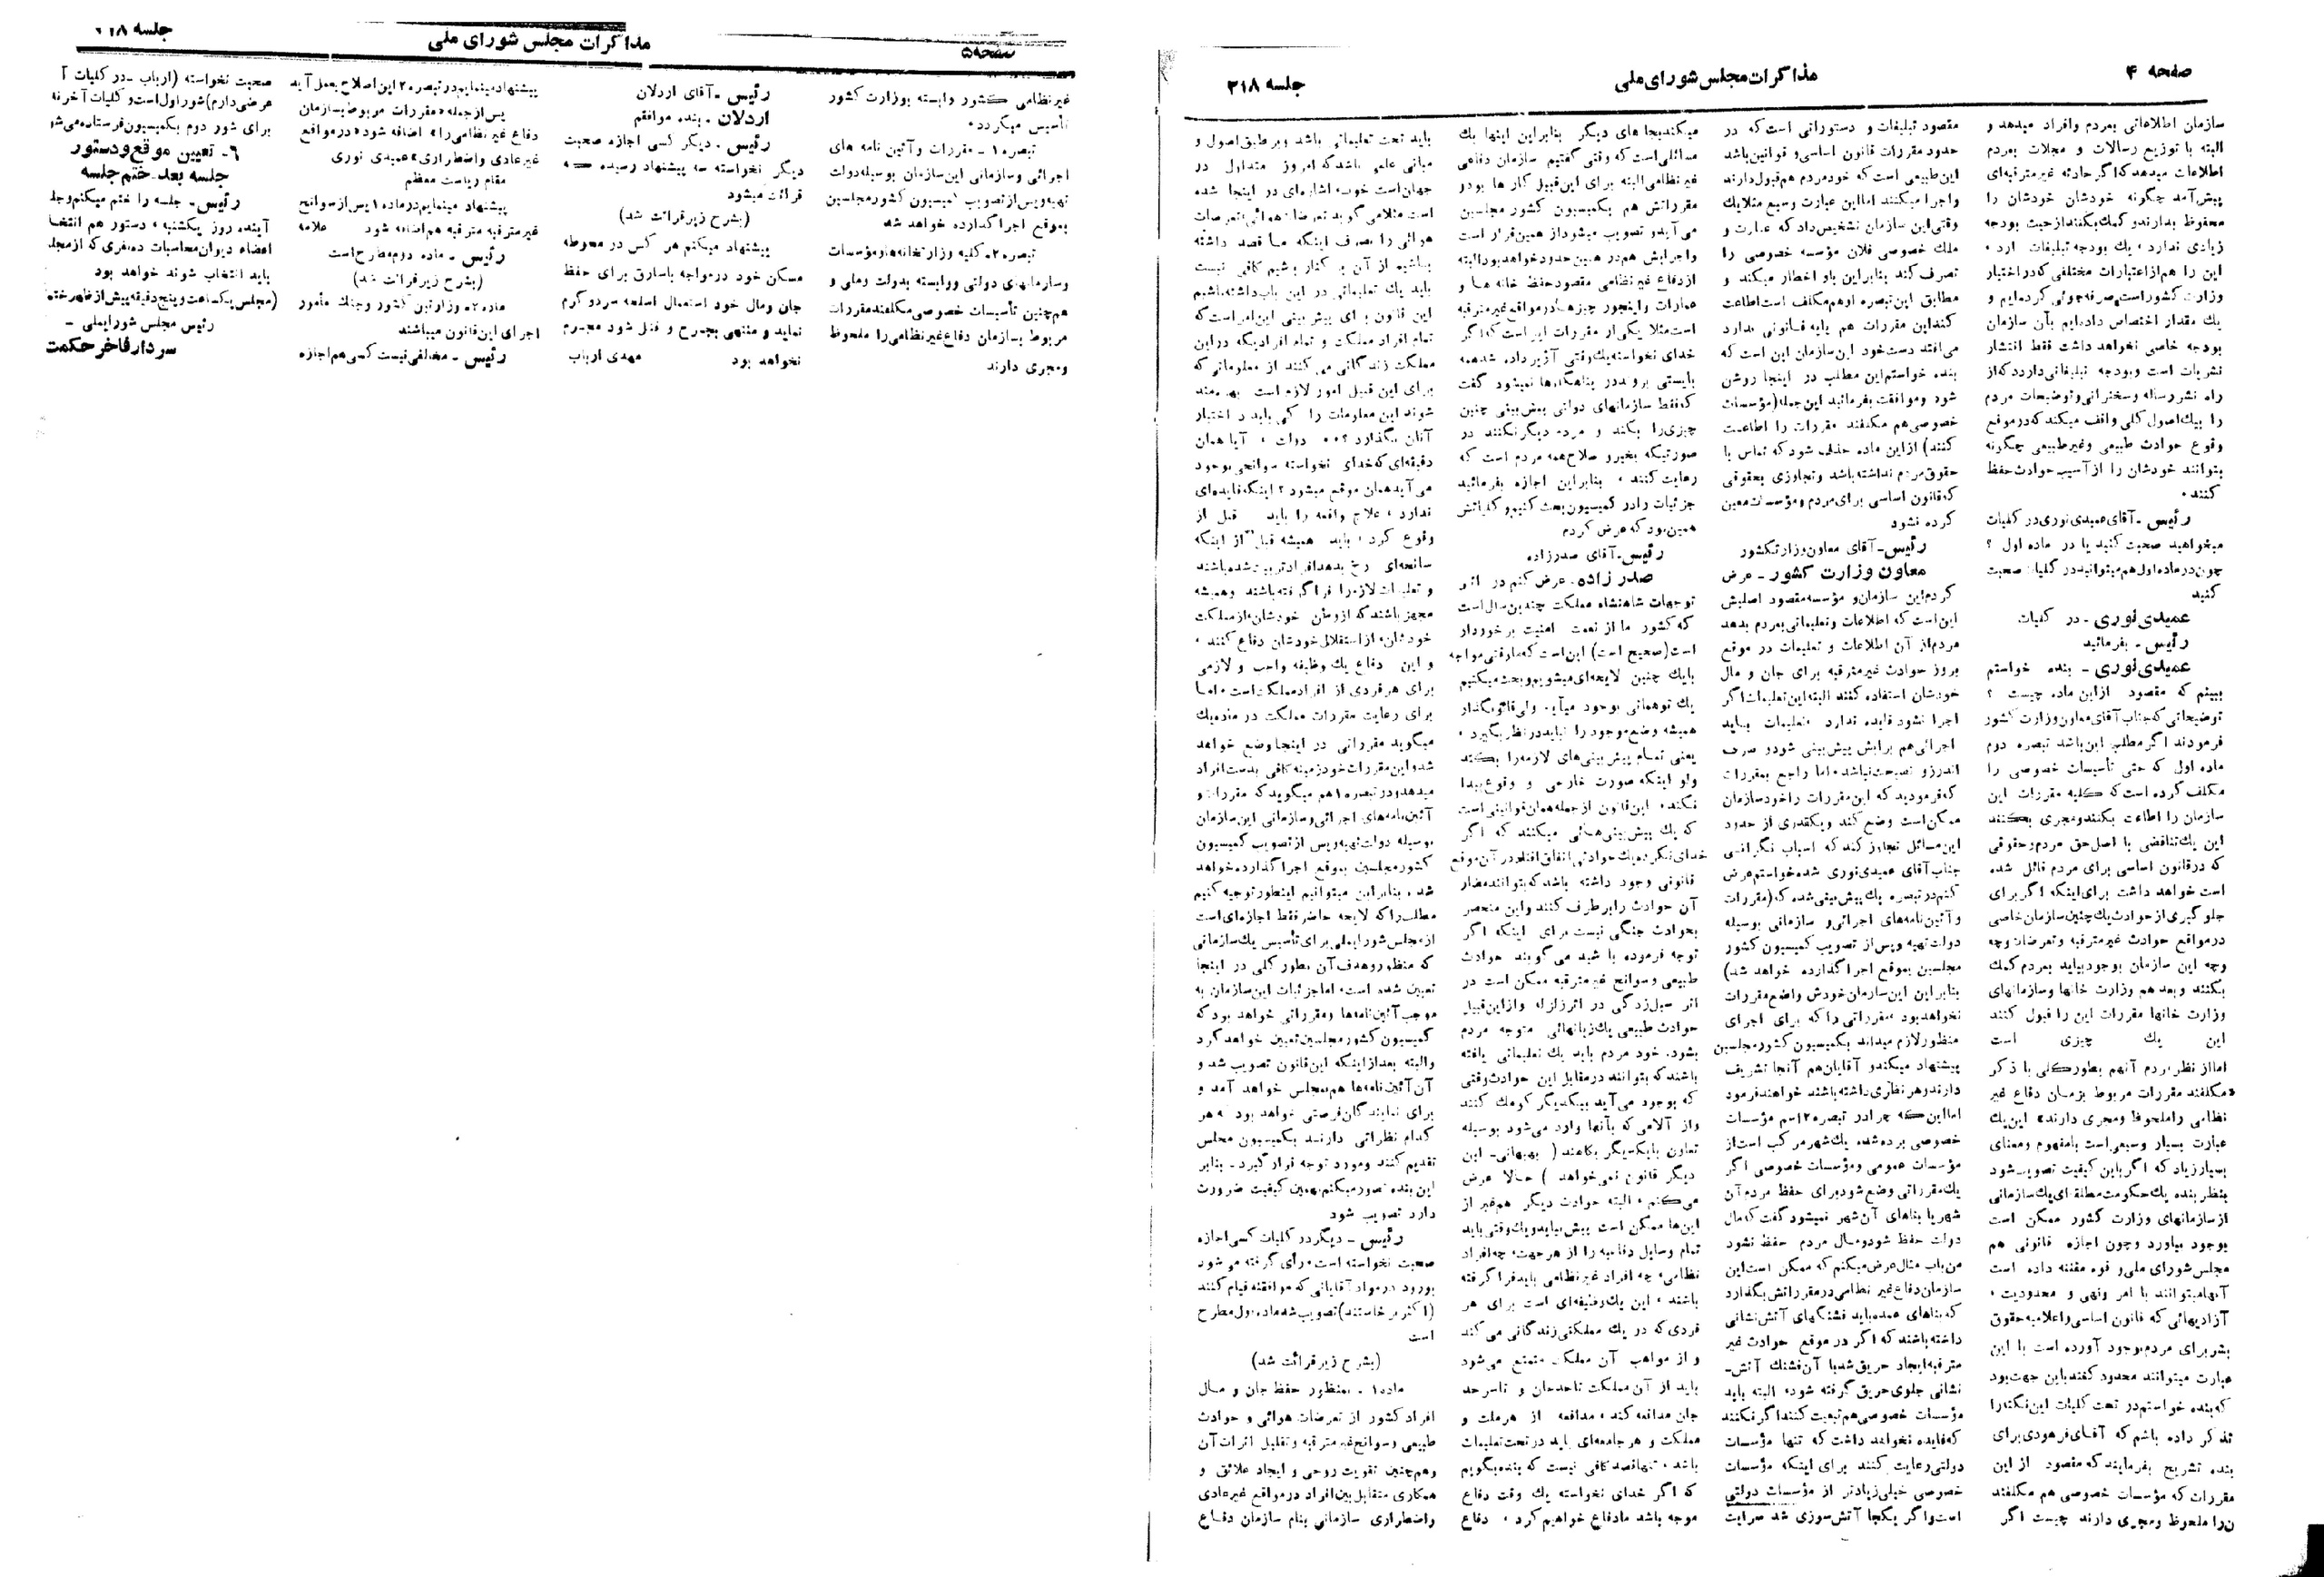 صفحه ۴
مذاکرات مجلس شورای ملی
جلسه ۲۱۸
سازمان اطلاعاتی بمردم وافراد میدهد و
البته با توزیع رسالات و مجلات بمردم
اطلاعات میدهد که اگر حادثه غیرمترقبه‌ای
پیش آمد چگونه خودشان خودشان را
محفوظ بدارند و کمک بکنند از حیث بودجه
زیادی ندارد، یك بودجه تبلیغات دارد،
این را هم از اعتبارات مختلفی که در اختیار
وزارت کشور است صرفه‌جوئی کرده‌ایم و
یك مقدار اختصاص داده‌ایم بآن سازمان
بودجه خاصی نخواهد داشت فقط انتشار
نشریات است و بودجه تبلیغاتی دارد که از
راه نشر رساله و سخنرانی و توضیحات مردم
را بیك اصول کلی واقف میکند که در موقع
وقوع حوادث طبیعی وغیرطبیعی چگونه
بتوانند خودشان را از آسیب حوادث حفظ
کنند.
رئیس - آقای عمیدی نوری در کلیات
میخواهید صحبت کنید یا در ماده اول ؟
چون در ماده اول هم میتوانید در کلیات صحبت
کنید
عمیدی نوری - در کلیات
رئیس - بفرمائید
عمیدی نوری - بنده خواستم
ببینم که مقصود از این ماده چیست ؟
توضیحاتی که جناب آقای معاون وزارت کشور
فرمودند اگر مطلب این باشد تبصره دوم
ماده اول که حتی تأسیسات خصوصی را
مکلف کرده است که کلیه مقررات این
سازمان را اطاعت بکنند و مجری بکنند
این یك تناقضی با اصل حق مردم و حقوقی
که در قانون اساسی برای مردم قائل شده
است خواهد داشت برای اینکه اگر برای
جلوگیری از حوادث یك چنین سازمان خاصی
در مواقع حوادث غیرمترقبه و تعرضات وچه
وچه این سازمان بوجود بیاید بمردم کمك
بکنند و بعد هم وزارت خانها و سازمانهای
وزارت خانها مقررات این را قبول کنند
این یك چیزی است
اما از نظر مردم آنهم بطور کلی با ذکر
«مکلفند مقررات مربوط بزمان دفاع غیر
نظامی را ملحوظ ومجری دارند» این یك
عبارت بسیار وسیعی است با مفهوم ومعنای
بسیار زیاد که اگر باین کیفیت تصویب شود
بنظر بنده یك حکومت مطلقه‌ای یك سازمانی
از سازمانهای وزارت کشور ممکن است
بوجود بیاورد وچون اجازه قانونی هم
مجلس شورای ملی و قوه مقننه داده است
آنها میتوانند با امر ونهی و محدودیت،
آزادیهائی که قانون اساسی و اعلامیه حقوق
بشر برای مردم بوجود آورده است با این
عبارت میتوانند محدود کنند باین جهت بود
که بنده خواستم در تحت کلیات این نکته را
تذکر داده باشم که آقای فرهودی برای
بنده تشریح بفرمایند که مقصود از این
مقررات که مؤسسات خصوصی هم مکلفند
آن را ملحوظ ومجری دارند چیست اگر
مقصود تبلیغات و دستوراتی است که در
حدود مقررات قانون اساسی و قوانین باشد
این طبیعی است که خود مردم هم قبول دارند
واجرا میکنند اما این عبارت وسیع مثلا یك
وقتی این سازمان تشخیص داد که عمارت و
ملك خصوصی فلان مؤسسه خصوصی را
تصرف کند بنابراین باو اخطار میکند و
مطابق این تبصره او هم مکلف است اطاعت
کند این مقررات هم پایه قانونی ندارد
می‌افتد دست خود این سازمان این است که
بنده خواستم این مطلب در اینجا روشن
شود و موافقت بفرمائید این جمله (مؤسسات
خصوصی هم مکلفند مقررات را اطاعت
کنند) از این ماده حذف شود که تماس با
حقوق مردم نداشته باشد و تجاوزی بحقوقی
که قانون اساسی برای مردم و مؤسسات معین
کرده نشود
رئیس - آقای معاون وزارت کشور
معاون وزارت کشور - عرض
کردم این سازمان و مؤسسه مقصود اصلیش
این است که اطلاعات و تعلیماتی بمردم بدهد
مردم از آن اطلاعات و تعلیمات در موقع
بروز حوادث غیرمترقبه برای جان و مال
خودشان استفاده کنند البته این تعلیمات اگر
اجرا نشود فایده ندارد تعلیمات بیاید
اجرائی هم برایش پیش بینی شود و صرف
اندرز و نصیحت نباشد، اما راجع بمقررات
که فرمودید که این مقررات را خود سازمان
ممکن است وضع کند و یکقدری از حدود
این مسائل تجاوز کند که اسباب نگرانی
جناب آقای عمیدی نوری شده خواستم عرض
کنم در تبصره یك پیش بینی شده که (مقررات
و آئین نامه‌های اجرائی و سازمانی بوسیله
دولت تهیه و پس از تصویب کمیسیون کشور
مجلسین بموقع اجرا گذارده خواهد شد)
بنابراین این سازمان خودش واضع مقررات
نخواهد بود مقرراتی را که برای اجرای
منظور لازم میداند بکمیسیون کشور مجلسین
پیشنهاد میکند و آقایان هم آنجا تشریف
دارند و هر نظری داشته باشند خواهند فرمود
اما این که چرا در تبصره ۲ اسم مؤسسات
خصوصی برده شده یك شهر مرکب است از
مؤسسات عمومی و مؤسسات خصوصی اگر
یك مقرراتی وضع شود برای حفظ مردم آن
شهر یا بناهای آن شهر نمیشود گفت که مال
دولت حفظ شود و مال مردم حفظ نشود
من باب مثال عرض میکنم که ممکن است این
سازمان دفاع غیر نظامی در مقرراتش بگذارد
که بناهای عمده باید فشنگهای آتش نشانی
داشته باشند که اگر در موقع حوادث غیر
مترقبه ایجاد حریق شد با آن فشنك آتش-
نشانی جلوی حریق گرفته شود، البته باید
مؤسسات خصوصی هم تبعیت کنند اگر نکنند
که فایده نخواهد داشت که تنها مؤسسات
دولتی رعایت کنند برای اینکه مؤسسات
خصوصی خیلی زیادتر از مؤسسات دولتی
است و اگر یکجا آتش سوزی شد سرایت
میکند بجاهای دیگر بنابراین اینها یك
مسائلی است که وقتی گفتیم سازمان دفاعی
غیرنظامی البته برای این قبیل کارها بود و
مقرراتش هم بکمیسیون کشور مجلسین
می‌آید و تصویب میشود از همین قرار است
و اجرایش هم در همین حدود خواهد بود البته
از دفاع غیرنظامی مقصود حفظ خانه ها و
عمارات و اینجور چیزها در مواقع غیرمترقبه
است مثلا یکی از مقررات این است که اگر
خدای نخواسته یك وقتی آژیر داده شد همه
بایستی بروند در پناهگاه‌ها نمیشود گفت
که فقط سازمانهای دولتی پیش بینی چنین
چیزی را بکند و مردم دیگر نکنند در
صورتیکه بخیر و صلاح همه مردم است که
رعایت کنند، بنابراین اجازه بفرمائید
جزئیات را در کمیسیون بحث کنیم و کلیاتش
همین بود که عرض کردم
رئیس - آقای صدرزاده
صدرزاده - عرض کنم در اثر
توجهات شاهنشاه مملکت چندین سال است
که کشور ما از نعمت امنیت برخوردار
است (صحیح است) این است که ما وقتی مواجه
با یك چنین لایحه‌ای میشویم و بحث میکنیم
یك توهماتی بوجود میآید ولی قانونگذار
همیشه وضع موجود را نباید در نظر بگیرد،
یعنی تمام پیش بینی‌های لازمه را بکند
ولو اینکه صورت خارجی و وقوع پیدا
نکند، این قانون از جمله همان قوانینی است
که یك پیش بینی‌هائی میکنند که اگر
خدای نکرده یك حوادثی اتفاق افتاد در آن موقع
قانونی وجود داشته باشد که بتوانند مضار
آن حوادث را برطرف کنند و این منحصر
بحوادث جنگی نیست برای اینکه اگر
توجه فرموده باشید می گویند حوادث
طبیعی و سوانح غیرمترقبه ممکن است در
اثر سیل زدگی در اثر زلزله و از این قبیل
حوادث طبیعی یك زیانهائی متوجه مردم
بشود. خود مردم باید یك تعلیماتی یافته
باشند که بتوانند در مقابل این حوادث وقتی
که بوجود می‌آید بیکدیگر کومك کنند
واز آلامی که بآنها وارد می‌شود بوسیله
تعاون با یکدیگر بکاهند (بهبهانی - این
دیگر قانون نمی‌خواهد) حالا عرض
می‌کنم، البته حوادث دیگر هم غیر از
این‌ها ممکن است پیش بیاید و یك وقتی باید
تمام وسایل دفاعیه را از هر جهت، چه افراد
نظامی، چه افراد غیرنظامی باید فرا گرفته
باشند، این یك وظیفه‌ای است برای هر
فردی که در یك مملکتی زندگانی می کند
و از مواهب آن مملکت متمتع می‌شود
باید از آن مملکت تا حد جان و تا سرحد
جان مدافعه کند، مدافعه از هر ملت و
مملکت و هر جامعه‌ای باید در تحت تعلیمات
باشد، تنها قصد کافی نیست که بنده بگویم
که اگر خدای نخواسته یك وقت دفاع
موجه باشد ما دفاع خواهیم کرد، دفاع
باید تحت تعلیماتی باشد و بر طبق اصول و
مبانی علمی باشد که امروز متداول در
جهان است خوب، اشاره‌ای در اینجا شده
است مثلا می گوید تعرضات هوائی، تعرضات
هوائی را بصرف اینکه ما قصد داشته
باشیم از آن بر کنار باشیم کافی نیست
باید یك تعلیماتی در این باب داشته باشیم
این قانون برای پیش بینی این امر است که
تمام افراد مملکت و تمام افرادیکه در این
مملکت زندگانی می کنند از معلوماتی که
برای این قبیل امور لازم است بهره‌مند
شوند این معلومات را کی باید در اختیار
آنان بگذارد ؟ دولت، آیا همان
دقیقه‌ای که خدای نخواسته سوانحی بوجود
می آید همان موقع میشود ؟ اینکه فایده‌ای
ندارد، علاج واقعه را باید قبل از
وقوع کرد، باید همیشه قبل از اینکه
سانحه‌ای رخ بدهد افراد تربیت شده باشند
و تعلیمات لازم را فرا گرفته باشند وهمیشه
مجهز باشند که از وطن خودشان، از مملکت
خودشان، از استقلال خودشان دفاع کنند،
و این دفاع یك وظیفه واجب و لازمی
برای هر فردی از افراد مملکت است، اما
برای رعایت مقررات مملکت در ماده یك
میگوید مقرراتی در اینجا وضع خواهد
شد و این مقررات خود زمینه کافی بدست افراد
میدهد و در تبصره ۱ هم میگوید که مقررات و
آئین نامه‌های اجرائی و سازمانی این سازمان
بوسیله دولت تهیه و پس از تصویب کمیسیون
کشور مجلسین بموقع اجرا گذارده خواهد
شد، بنابراین میتوانیم اینطور توجیه کنیم
مطلب را که لایحه حاضر فقط اجازه‌ای است
از مجلس شورایملی برای تأسیس یك سازمانی
که منظور و هدف آن بطور کلی در اینجا
تعیین شده است، اما جزئیات این سازمان به
موجب آئین نامه‌ها و مقرراتی خواهد بود که
کمیسیون کشور مجلسین تعیین خواهد کرد
والبته بعد از اینکه این قانون تصویب شد و
آن آئین نامه‌ها هم بمجلس خواهد آمد و
برای نمایندگان فرصتی خواهد بود، هر
کدام نظراتی دارند بکمیسیون مجلس
تقدیم کنند ومورد توجه قرار گیرد - بنابر
این بنده تصور میکنم بهمین کیفیت ضرورت
دارد تصویب شود
رئیس - دیگر در کلیات کسی اجازه
صحبت نخواسته است، رأی گرفته می شود
بورود در مواد آقایانی که موافقند قیام کنند
(اکثر برخاستند) تصویب شد ماده اول مطرح
است
(بشرح زیر قرائت شد)
ماده ۱ - بمنظور حفظ جان و مال
افراد کشور از تعرضات هوائی و حوادث
طبیعی و سوانح غیر مترقبه و تقلیل اثرات آن
وهم چنین تقویت روحی و ایجاد علائق و
همکاری متقابل بین افراد در مواقع غیر عادی
واضطراری سازمانی بنام سازمان دفاع
صفحه ۵
مذاکرات مجلس شورای ملی
جلسه ۲۱۸
غیرنظامی کشور وابسته بوزارت کشور
تأسیس میگردد.
تبصره ۱ - مقررات و آئین نامه های
اجرائی و سازمانی این سازمان بوسیله دولت
تهیه و پس از تصویب کمیسیون کشور مجلسین
بموقع اجرا گذارده خواهد شد
تبصره ۲ - کلیه وزارتخانه‌ها و مؤسسات
وسازمانهای دولتی و وابسته بدولت وملی و
هم چنین تأسیسات خصوصی مکلفند مقررات
مربوط بسازمان دفاع غیرنظامی را ملحوظ
ومجری دارند
رئیس - آقای اردلان
اردلان - بنده موافقم
رئیس - دیگر کسی اجازه صحبت
دیگر نخواسته سه پیشنهاد رسیده که
قرائت میشود
(بشرح زیر قرائت شد)
پیشنهاد میکنم هر کس در محوطه
مسکن خود در مواجه با سارق برای حفظ
جان ومال خود استعمال اسلحه سرد و گرم
نماید و منتهی بجرح و قتل شود مجرم
نخواهد بود مهدی ارباب
پیشنهاد مینمایم در تبصره ۲ این اصلاح بعمل آید
پس از جمله «مقررات مربوط بسازمان
دفاع غیر نظامی را» اضافه شود «در مواقع
غیرعادی واضطراری» عمیدی نوری
مقام ریاست معظم
پیشنهاد مینمایم در ماده ۱ پس از سوانح
غیر مترقبه مترقبه هم اضافه شود علامه
رئیس - ماده دوم مطرح است
(بشرح زیر قرائت شد)
ماده ۲ - وزارتین کشور و جنك مأمور
اجرای این قانون میباشند
رئیس - مخالفی نیست کسی هم اجازه
صحبت نخواسته (ارباب - در کلیات
عرضی دارم) شور اول است و کلیات آخر نه
برای شور دوم بکمیسیون فرستاده می‌شود
۶- تعیین موقع و دستور
جلسه بعد - ختم جلسه
رئیس - جلسه را ختم میکنم
آینده روز یکشنبه، دستور هم
اعضاء دیوان محاسبات ده نفری که از
باید انتخاب شوند خواهد بود
(مجلس یکساعت و پنج دقیقه پیش از ظهر
رئیس مجلس شورایملی -
سردار فاخر حکمت